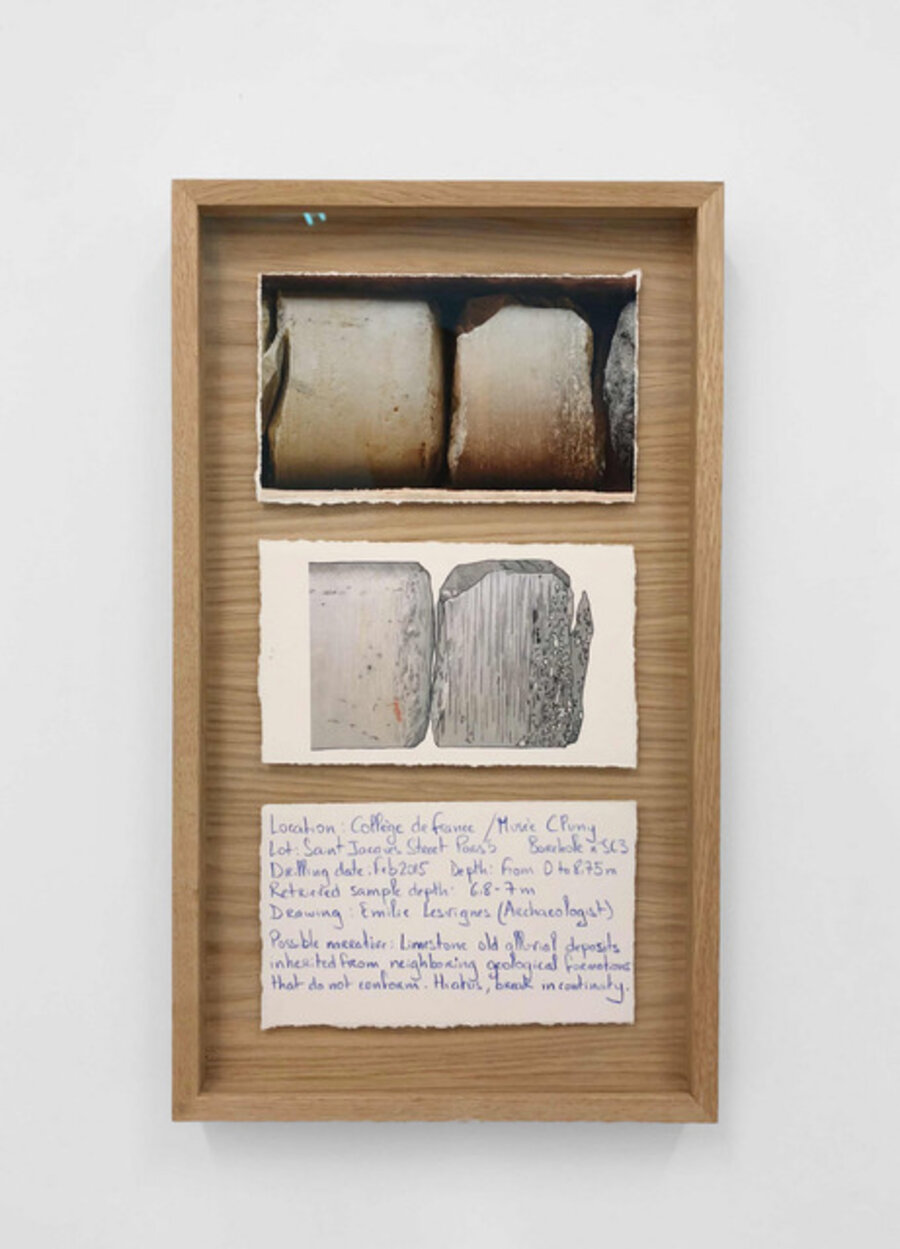 Location : Collège de france / Musée Cluny
Lot : Saint Jacques Street Paris 5 Borehole n° SC3
Drilling date : Feb 2015 Depth : from 0 to 8.75 m
Retrieved sample depth : 6.8 - 7 m
Drawing : Emilie Lesvignes (Archaeologist)
Possible narrative : Limestone old alluvial deposits
inherited from neighboring geological formations
that do not conform. Hiatus, break in continuity.